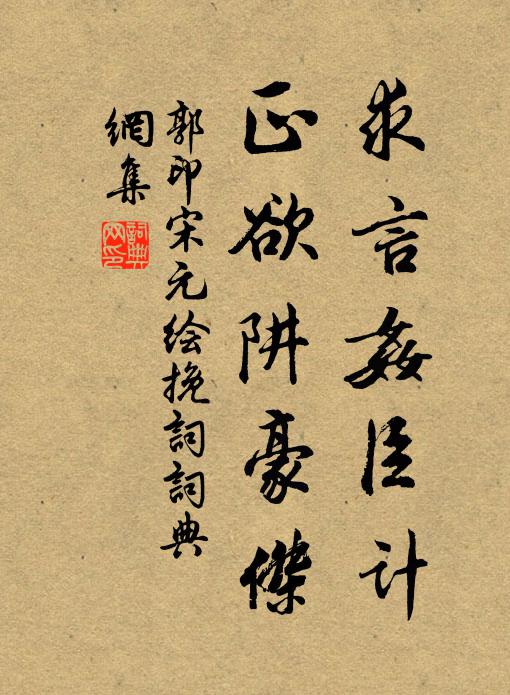 求言姦臣計
正欲阱豪傑
郭印宋元绘挽詞詞典
網集
詞典
网印